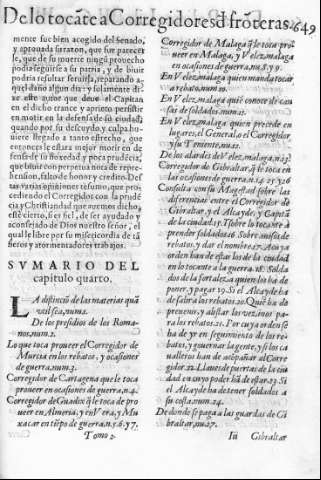 De lo tocãte a Corregidores d frõteras. 649
mente fue bien acogido del Senado,
y aprouada su razon, que fue parecer
le, que de su muerte ningũ prouecho
podia seguirse a su patria, y de biuir
podria resultar seruirla, reparando a-
quel daño algun dia: y solamente di-
ze este autor que deue el Capitan
en el dicho trance y aprieto persistir
en morir en la defensa de su ciudad,
quando por su descuydo y culpa hu-
uiesse llegado a tanto estrecho, que
entonces le estara mejor morir en de
fensa de su honra
que biuir con perpetua nota de repre-
henson, falto de honor y credito. De
tas varias opiniones resumo, que pro-
cediendo el Corregidor con la prudẽ
cia y Christiandad que auemos dicho,
esté cierto, si es fiel, de ser ayudado y
aconsejado de Dios nuestro señor, el
qual le libre por su misericordia de tã
fieros y atormentadores trabajos.
SVMARIO DEL
capitulo quarto.
LA distinciõ de las materias quã
vtil sea, num.1.
De los presidios de los Roma-
nos, num.2.
Lo que toca proueer el Corregidor de
Murcia en los rebatos, y ocasiones
de guerra, num.3.
Corregidor de Cartagena que le toca
proueer en ocasiones de guerra, n.4.
Corregidor de Guadix q̃ le toca de pro
ueer en Almeria, y en Vera, y Mu
xacar en tiẽpo de guerra, n.5.6.y.7.
Tomo 2.
Corregidor de Malaga q̃ le toca pro
ueer en Malaga, y Velezmalaga
en ocasiones de guerra, nu.8.y 9.
En Velezmalaga quien manda tocar
a rebato, num.10.
En Velezmalaga quiẽ conoce de cau
sas de soldados, num.11.
En Velezmalaga quien preside en
lugares, el General, o el Corregidor
y su Teniente, nu.12.
De los alardes de Velezmalaga, n.13.
Corregidor de Gibraltar, q̃ le toca en
las ocasiones de guerra, n.14.15.y 16
Consulta con su Magestad sobre las
diferencias entre el Corregidor de
Gibraltar, y el Alcayde, y Capitã
de la ciudad.15. Y sobre lo tocante a
prender soldados.16. Sobre auisos de
rebatos, y dar el nombre.17. Cuya
orden han de estar los de la ciudad
en lo tocante a la guerra.18. Solda
dos de la fortaleza quien los ha de
poner, y pagar.19. Si el Alcayde ha
de salir a los rebatos.20. Que ha de
proueer, y alistar los vezinos pa-
ra los rebatos.21. Por cuya ordẽ se
ha de yr en seguimiento de los re-
batos, y gouernar la gente, y si los ca
ualleros han de acõpañar al Corre
gidor.22. Llaues de puertas de la ciu
dad en cuyo poder hã de estar.23. Si
el Alcayde ha de tener soldados a
su costa. num.24.
De donde se paga a las guardas de Gi
braltar, nu.27.
Iii Gibraltar